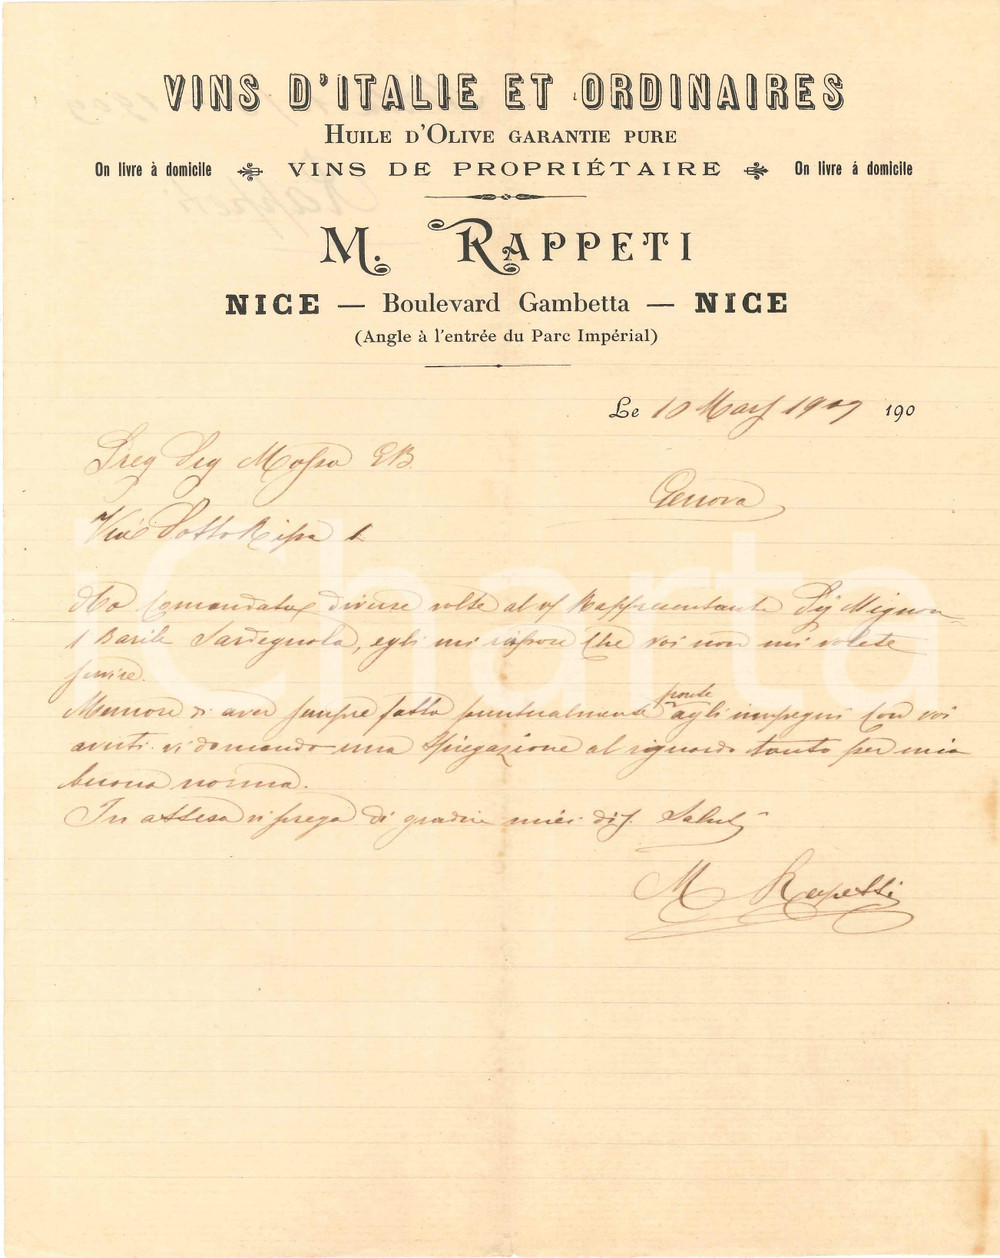 VINS D'ITALIE ET ORDINAIRES
HUILE D'OLIVE GARANTIE PURE
On livre à domicile VINS DE PROPRIÉTAIRE On livre á domicile
M. RAPPETI
NICE — Boulevard Gambetta — NICE
(Angle à l'entrée du Parc Impérial)
Le 10 1909 190
Preg Sig Mosso GB.
Genova
Via Sotto Ripa 1
Ho comandato diverse volte al Vs Rappresentante Sig Mignon
1 Barile Sardegnola, egli mi rispose che voi non mi volete
servire.
Memore di aver sempre fatto puntualmente fronte agli impegni con voi
avuti vi domando una spiegazione al riguardo tanto per mia
buona norma.
In attesa vi prego di gradire miei Saluti
M Rapetti
iCharta